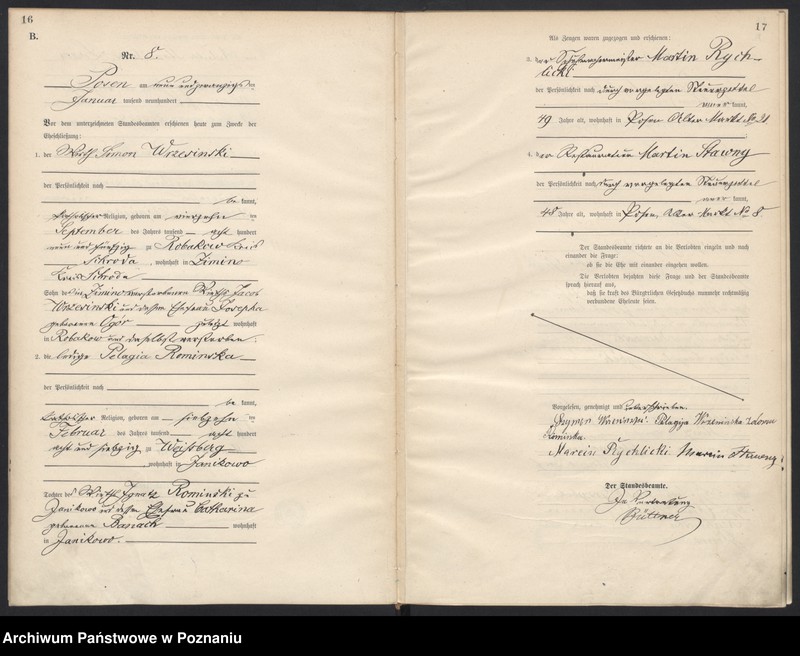 16
B.
Nr. 8.
Posen am neun und zwanzigsten
Januar tausend neunhundert
Vor dem unterzeichneten Standesbeamten erschienen heute zum Zwecke der
Eheschließung:
1. der Wirth Simon Wrzesinski
der Persönlichkeit nach
be kannt,
katholischer Religion, geboren am vierzehn ten
September des Jahres tausend acht hundert
neun und fünfzig zu Robakowo Kreis
Schroda, wohnhaft in Zimino
Kreis Schroda
Sohn des in Zimino verstorbenen Wirths Jacob
Wrzesinski und dessen Ehefrau Josepha
geborenen Ogór zuletzt wohnhaft
in Robakow und daselbst verstorben.
2. die ledige Pelagia Rominska
der Persönlichkeit nach
be kannt,
katholischer Religion, geboren am siebzehn ten
Februar des Jahres tausend acht hundert
acht und siebzig zu Weißberg
, wohnhaft in Janikowo
Tochter des Wirths Ignatz Rominski zu
Janikowo und dessen Ehefrau Catharina
geborenen Banach wohnhaft
in Janikowo.
17
Als Zeugen waren zugezogen und erschienen:
3. der Schuhmachermeister Martin Rych-
licki
der Persönlichkeit nach durch vorgelegten Steuerzettel
kannt,
49 Jahre alt, wohnhaft in Posen Alter Markt No
4. der Restaurateur Martin Stawny
der Persönlichkeit nach durch vorgelegten Steuerzettel
kannt,
48 Jahre alt, wohnhaft in Posen, Alter Markt No 8
Der Standesbeamte richtete an die Verlobten einzeln und nach
einander die Frage:
ob sie die Ehe mit einander eingehen wollen.
Die Verlobten bejahten diese Frage und der Standesbeamte
sprach hierauf aus,
daß sie kraft des Bürgerlichen Gesetzbuchs nunmehr rechtmäßig
verbundene Eheleute seien.
Vorgelesen, genehmigt und unterschrieben.
Szymon Pelagija Wrzesinska zdomu
Rominska.
Marcin Rychlicki Marcin Stawny
Der Standesbeamte.
In Vertretung
Büttner
Archiwum Państwowe w Poznaniu